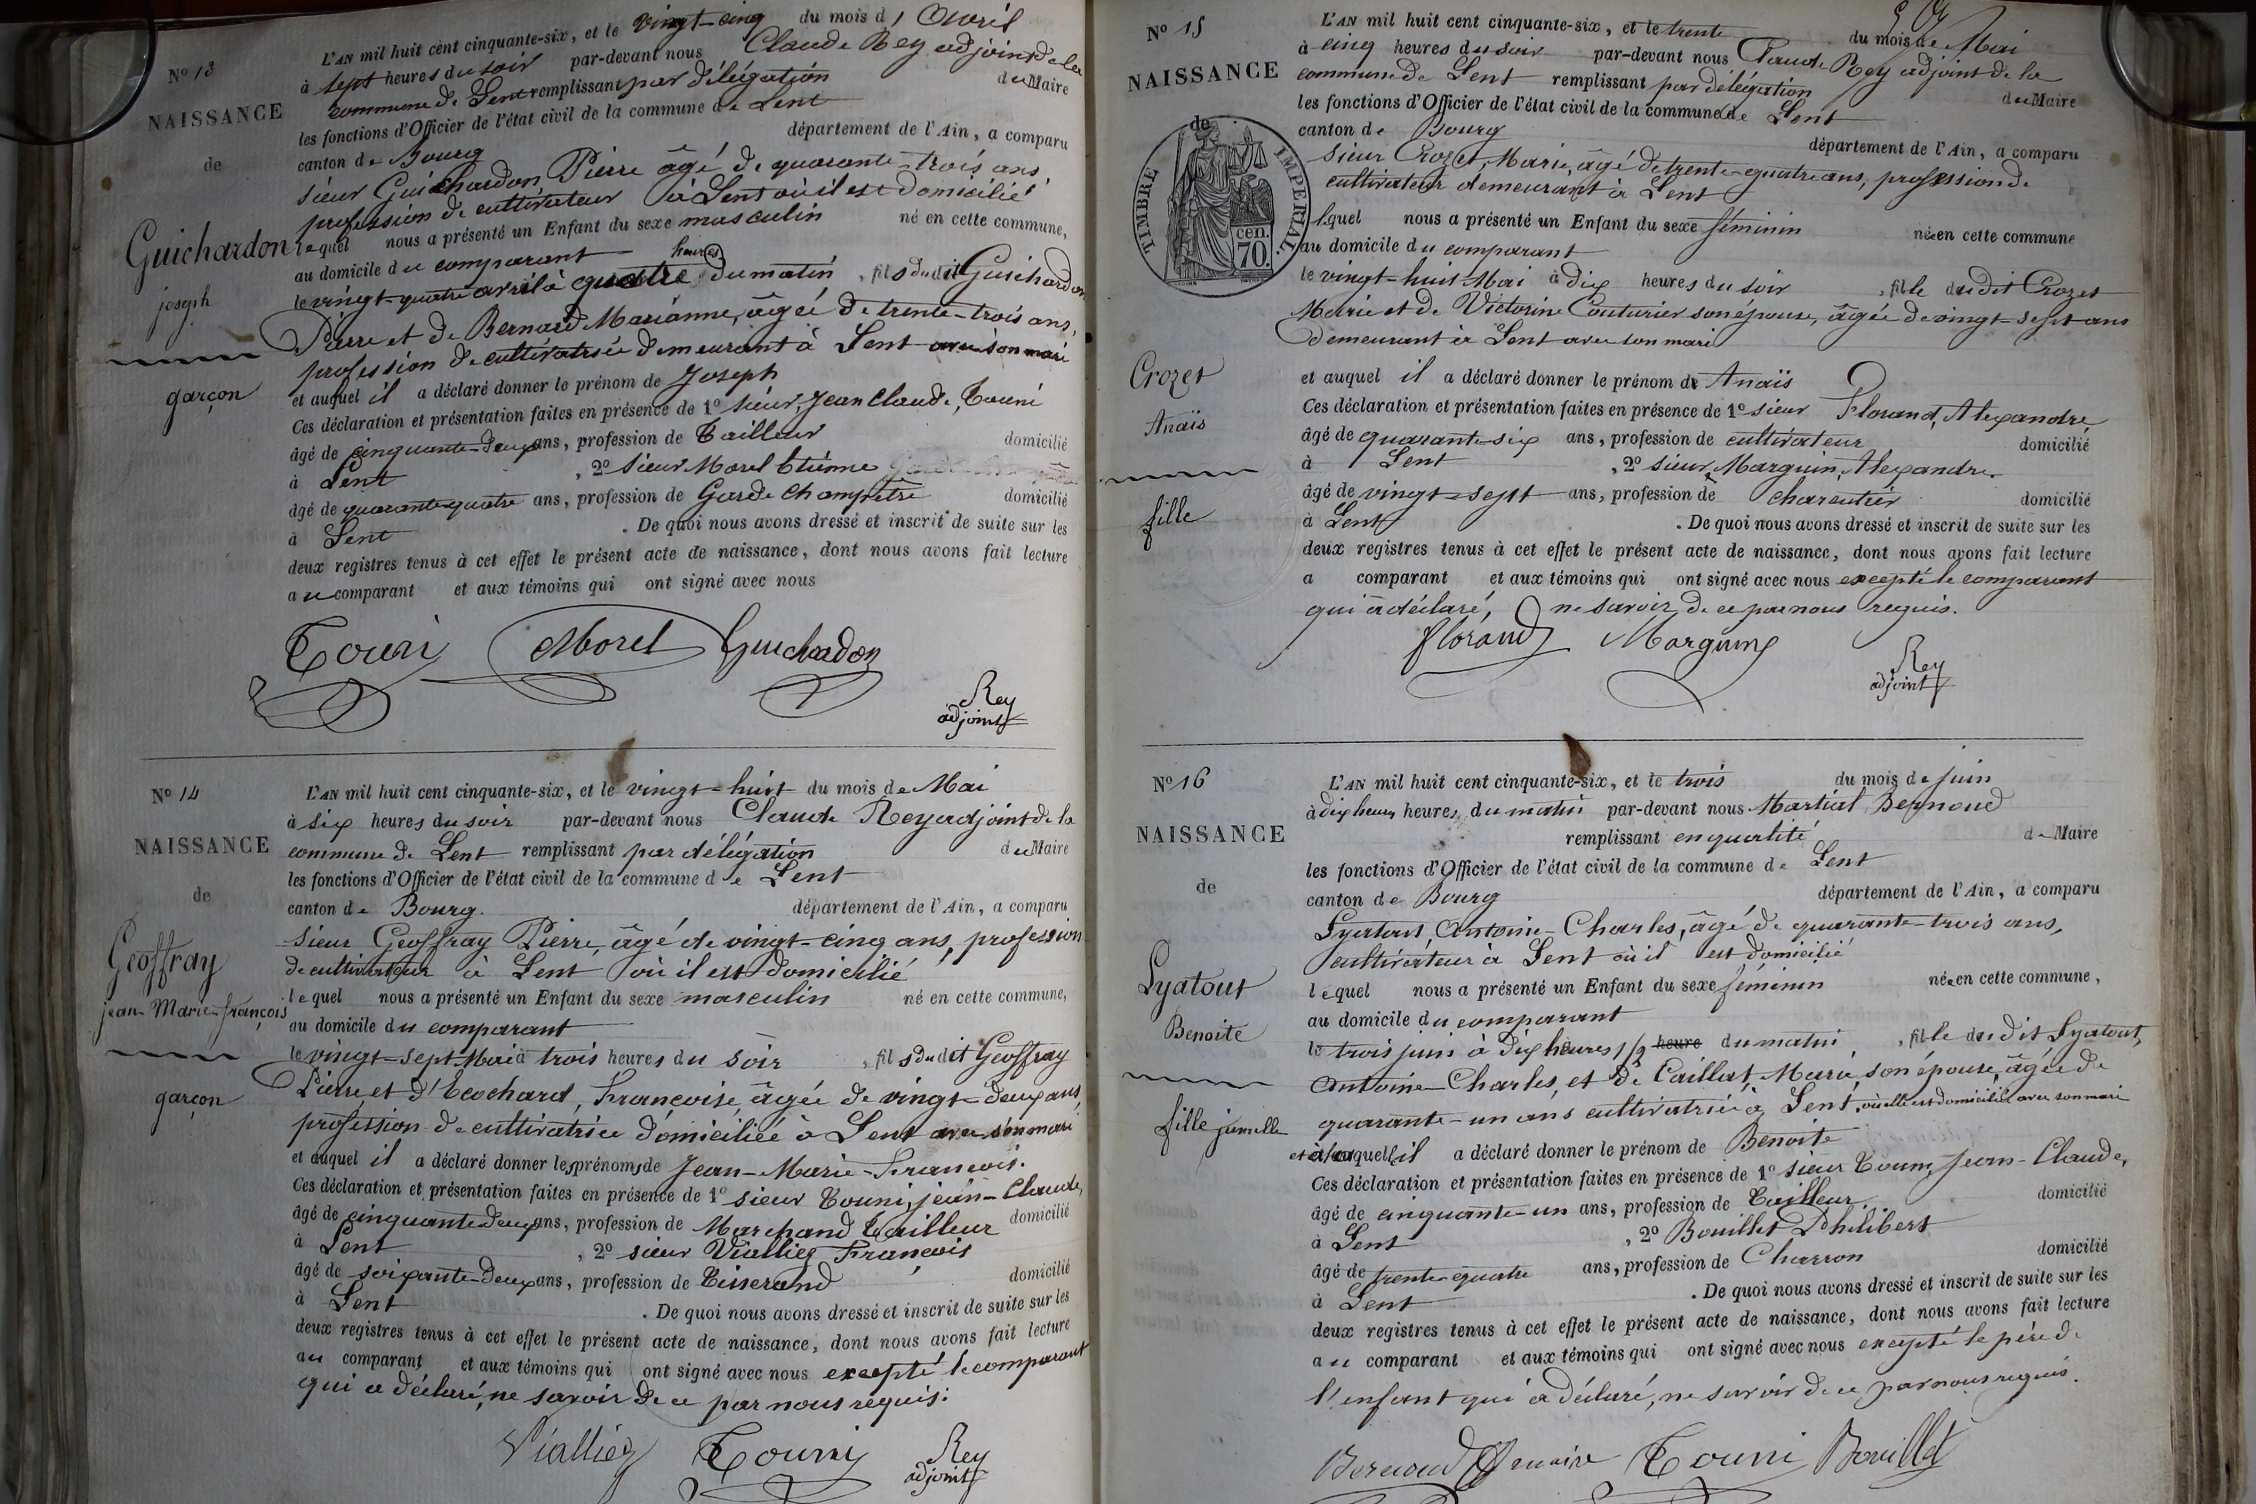 N° 13
NAISSANCE
de
Guichardon
joseph
garçon
L'AN mil huit cent cinquante-six, et le vingt-cinq du mois d'Avril
à sept heures du soir par-devant nous Claude Rey adjoint de la
commune de Lent remplissant par délégation du Maire
les fonctions d'Officier de l'état civil de la commune de Lent
canton de Bourg département de l'Ain, a comparu
sieur Guichardon Pierre âgé de quarante-trois ans,
profession de cultivateur à Lent où il est domicilié
lequel nous a présenté un Enfant du sexe masculin né en cette commune,
au domicile du comparant
le vingt-quatre avril à quatre heures du matin, fils dudit Guichardon
Pierre et de Bernard Marianne, âgée de trente-trois ans,
profession de cultivatrice demeurant à Lent avec son mari
et auquel il a déclaré donner le prénom de Joseph
Ces déclaration et présentation faites en présence de 1° sieur, Jean Claude, Touni
âgé de cinquante-deux ans, profession de Tailleur domicilié
à Lent, 2° sieur Morel Etienne
âgé de quarante-quatre ans, profession de Garde Champêtre domicilié
à Lent. De quoi nous avons dressé et inscrit de suite sur les
deux registres tenus à cet effet le présent acte de naissance, dont nous avons fait lecture
au comparant et aux témoins qui ont signé avec nous
Touni Morel Guichardon
Rey
adjoint
N° 14
NAISSANCE
de
Geoffray
jean-Marie-françois
garçon
L'AN mil huit cent cinquante-six, et le vingt-huit du mois de Mai
à six heures du soir par-devant nous Claude Rey adjoint de la
commune de Lent remplissant par délégation du Maire
les fonctions d'Officier de l'état civil de la commune de Lent
canton de Bourg. département de l'Ain, a comparu
sieur Geoffray Pierre, âgé de vingt-cinq ans, profession
de cultivateur à Lent où il est domicilié
lequel nous a présenté un Enfant du sexe masculin né en cette commune,
au domicile du comparant
le vingt-sept Mai à trois heures du soir, fils dudit Geoffray
Pierre et d'Ecochard, Françoise âgée de vingt-deux ans,
profession de cultivatrice domiciliée à Lent avec son mari
et auquel il a déclaré donner les prénoms de Jean-Marie-François.
Ces déclaration et présentation faites en présence de 1° sieur Touni, jean-Claude,
âgé de cinquante deux ans, profession de Marchand Tailleur domicilié
à Lent, 2° sieur Vialliez François
âgé de soixante-deux ans, profession de Tisserand domicilié
à Lent. De quoi nous avons dressé et inscrit de suite sur les
deux registres tenus à cet effet le présent acte de naissance, dont nous avons fait lecture
au comparant et aux témoins qui ont signé avec nous excepté le comparant
qui a déclaré, ne savoir de ce par nous requis.
Vialliez Touni Rey
adjoint
N° 15
NAISSANCE
de
TIMBRE IMPERIAL.
70. cen.
Crozet
Anaïs
fille
L'AN mil huit cent cinquante-six, et le trente du mois de Mai
à cinq heures du soir par-devant nous Claude Rey adjoint de la
commune de Lent remplissant par délégation du Maire
les fonctions d'Officier de l'état civil de la commune de Lent
canton de Bourg département de l'Ain, a comparu
sieur Crozet, Marie, âgé de trente-quatre ans, profession de
cultivateur demeurant à Lent
lequel nous a présenté un Enfant du sexe féminin née en cette commune
au domicile du comparant
le vingt-huit Mai à dix heures du soir, fille dudit Crozet
Marie et de Victorine Couturier son épouse, âgée de vingt-sept ans
demeurant à Lent avec son mari
et auquel il a déclaré donner le prénom de Anaïs
Ces déclaration et présentation faites en présence de 1° sieur Florand, Alexandre,
âgé de quarante-six ans, profession de cultivateur domicilié
à Lent, 2° sieur, Marguin, Alexandre.
âgé de vingt-sept ans, profession de charcutier domicilié
à Lent. De quoi nous avons dressé et inscrit de suite sur les
deux registres tenus à cet effet le présent acte de naissance, dont nous avons fait lecture
a comparant et aux témoins qui ont signé avec nous excepté le comparant
qui a déclaré, ne savoir de ce par nous requis.
florand Marguin
Rey
adjoint
N° 16
NAISSANCE
de
Lyatout
Benoite
fille jumelle
L'AN mil huit cent cinquante-six, et le trois du mois de juin
à dix heures heures du matin par-devant nous Martial Bernoud
remplissant en qualité de Maire
les fonctions d'Officier de l'état civil de la commune de Lent
canton de Bourg département de l'Ain, a comparu
Lyatout, Antoine-Charles, âgé de quarante-trois ans,
cultivateur à Lent où il est domicilié
lequel nous a présenté un Enfant du sexe féminin née en cette commune,
au domicile du comparant
le trois juin à dix heures 1/2 heure du matin, fille dudit Lyatout,
Antoine-Charles, et de Caillat, Marie, son épouse, âgée de
quarante-un ans cultivatrice à Lent, où elle est domiciliée avec son mari
et à laquelle il a déclaré donner le prénom de Benoite
Ces déclaration et présentation faites en présence de 1° sieur Touni, Jean-Claude,
âgé de cinquante-un ans, profession de Tailleur domicilié
à Lent, 2° Bouillet Philibert
âgé de trente-quatre ans, profession de Charron domicilié
à Lent. De quoi nous avons dressé et inscrit de suite sur les
deux registres tenus à cet effet le présent acte de naissance, dont nous avons fait lecture
au comparant et aux témoins qui ont signé avec nous excepté le père de
l'enfant qui a déclaré, ne savoir de ce par nous requis.
Bernoud maire Touni Bouillet